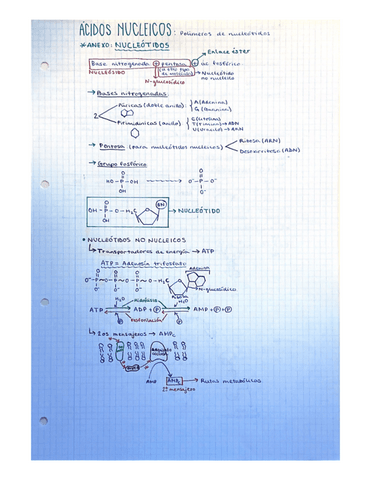 ÁCIDOS NUCLEICOS: Polímeros de nucleótidos
* ANEXO: NUCLEÓTIDOS
Enlace éster
Base nitrogenada + pentosa + ác. fosfórico
NUCLEÓSIDO
Nucleótido
no nucleico
N-glucosídico
→ Bases nitrogenadas:
2
Púricas (doble anillo)
A (Adenina)
G (Guanina)
Pirimidínicas (anillo)
C (Citosina)
T (Timina) → ADN
U (Uracilo) → ARN
→ Pentosa (para nucleótidos nucleicos)
Ribosa (ARN)
Desoxirribosa (ADN)
→ Grupo fosfórico
O
HO-P-OH
OH
O
O⁻-P-O⁻
O
OH-P-O-H₂C
BN
→ NUCLEÓTIDO
• NUCLEÓTIDOS NO NUCLEICOS
↳ Transportadores de energía → ATP
ATP = Adenosín trifosfato
Adenina
O⁻-P-O-P-O-P-O-H₂C
N-glucosídico
Ribosa
H₂O
Hidrólisis
H₂O
ATP ADP + P AMP + P + P
Fosforilación
P
P
↳ 2os mensajeros → AMPc
AMP
AMPc
→ Rutas metabólicas
2º mensajero